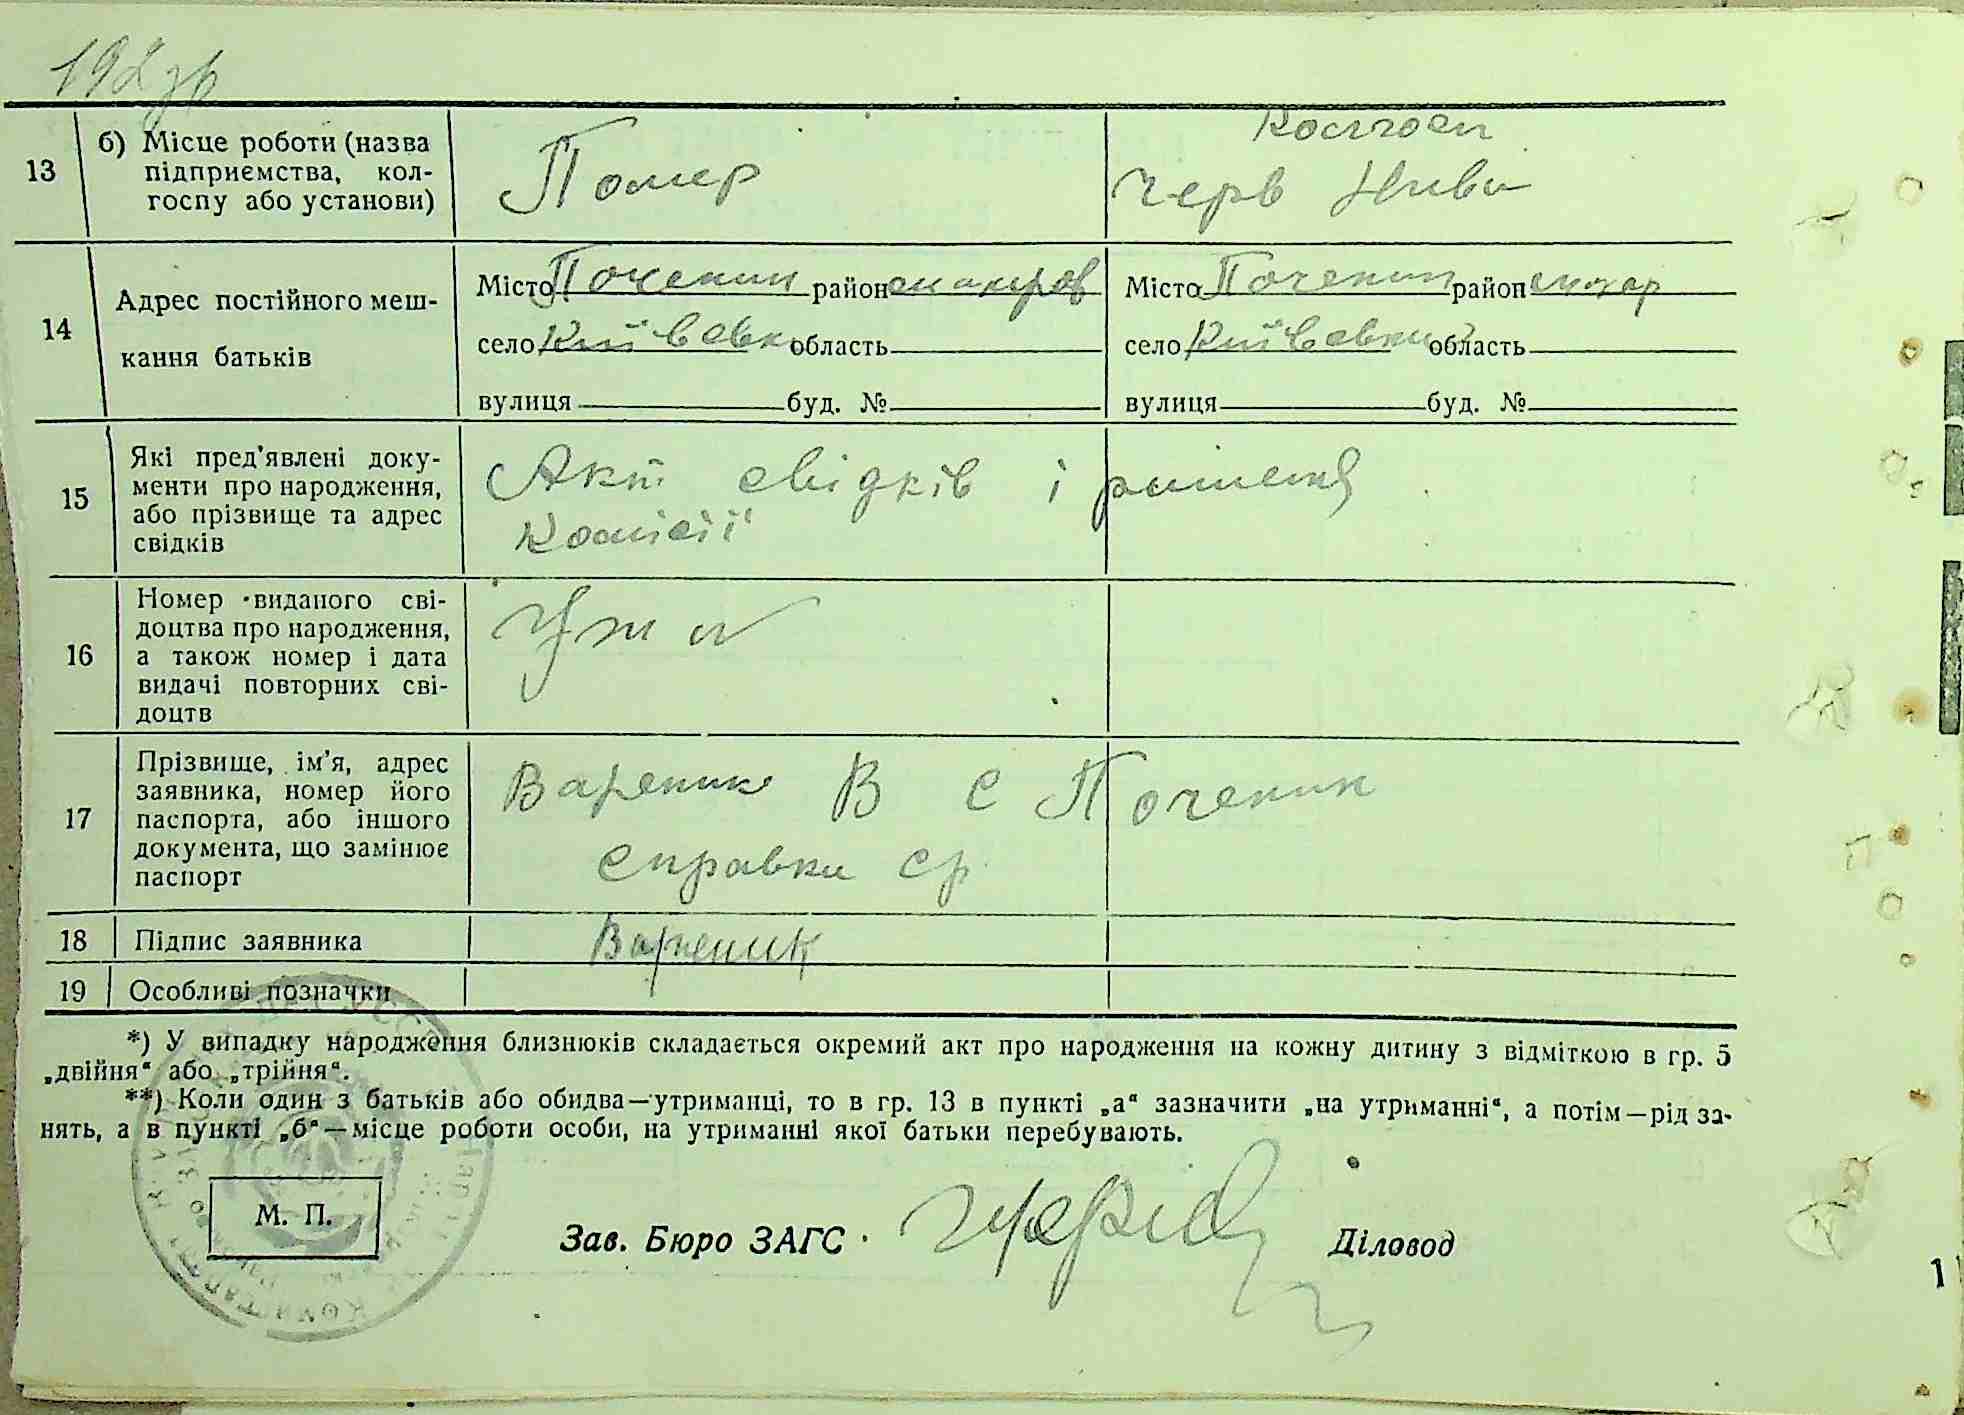 192зв
13
б) Місце роботи (назва
підприємства, кол-
госпу або установи)
Помер
Колгосп
Черв Нива
14
Адрес постійного меш-
кання батьків
Місто Поченин район макаров
село Київськ область
вулиця буд. №
Місто Поченин район макар
село Київський область
вулиця буд. №
15
Які пред'явлені доку-
менти про народження,
або прізвище та адрес
свідків
Акт свідків і рішення
комісії
16
Номер виданого сві-
доцтва про народження,
а також номер і дата
видачі повторних сві-
доцтв
17
Прізвище, ім'я, адрес
заявника, номер його
паспорта, або іншого
документа, що замінює
паспорт
Вареник В с Поченин
справка ср
18
Підпис заявника
Вареник
19
Особливі позначки
*) У випадку народження близнюків складається окремий акт про народження на кожну дитину з відміткою в гр. 5
„двійня“ або „трійня“.
**) Коли один з батьків або обидва—утриманці, то в гр. 13 в пункті „а“ зазначити „на утриманні“, а потім—рід за-
нять, а в пункті „б“—місце роботи особи, на утриманні якої батьки перебувають.
М. П.
Зав. Бюро ЗАГС
Діловод
1